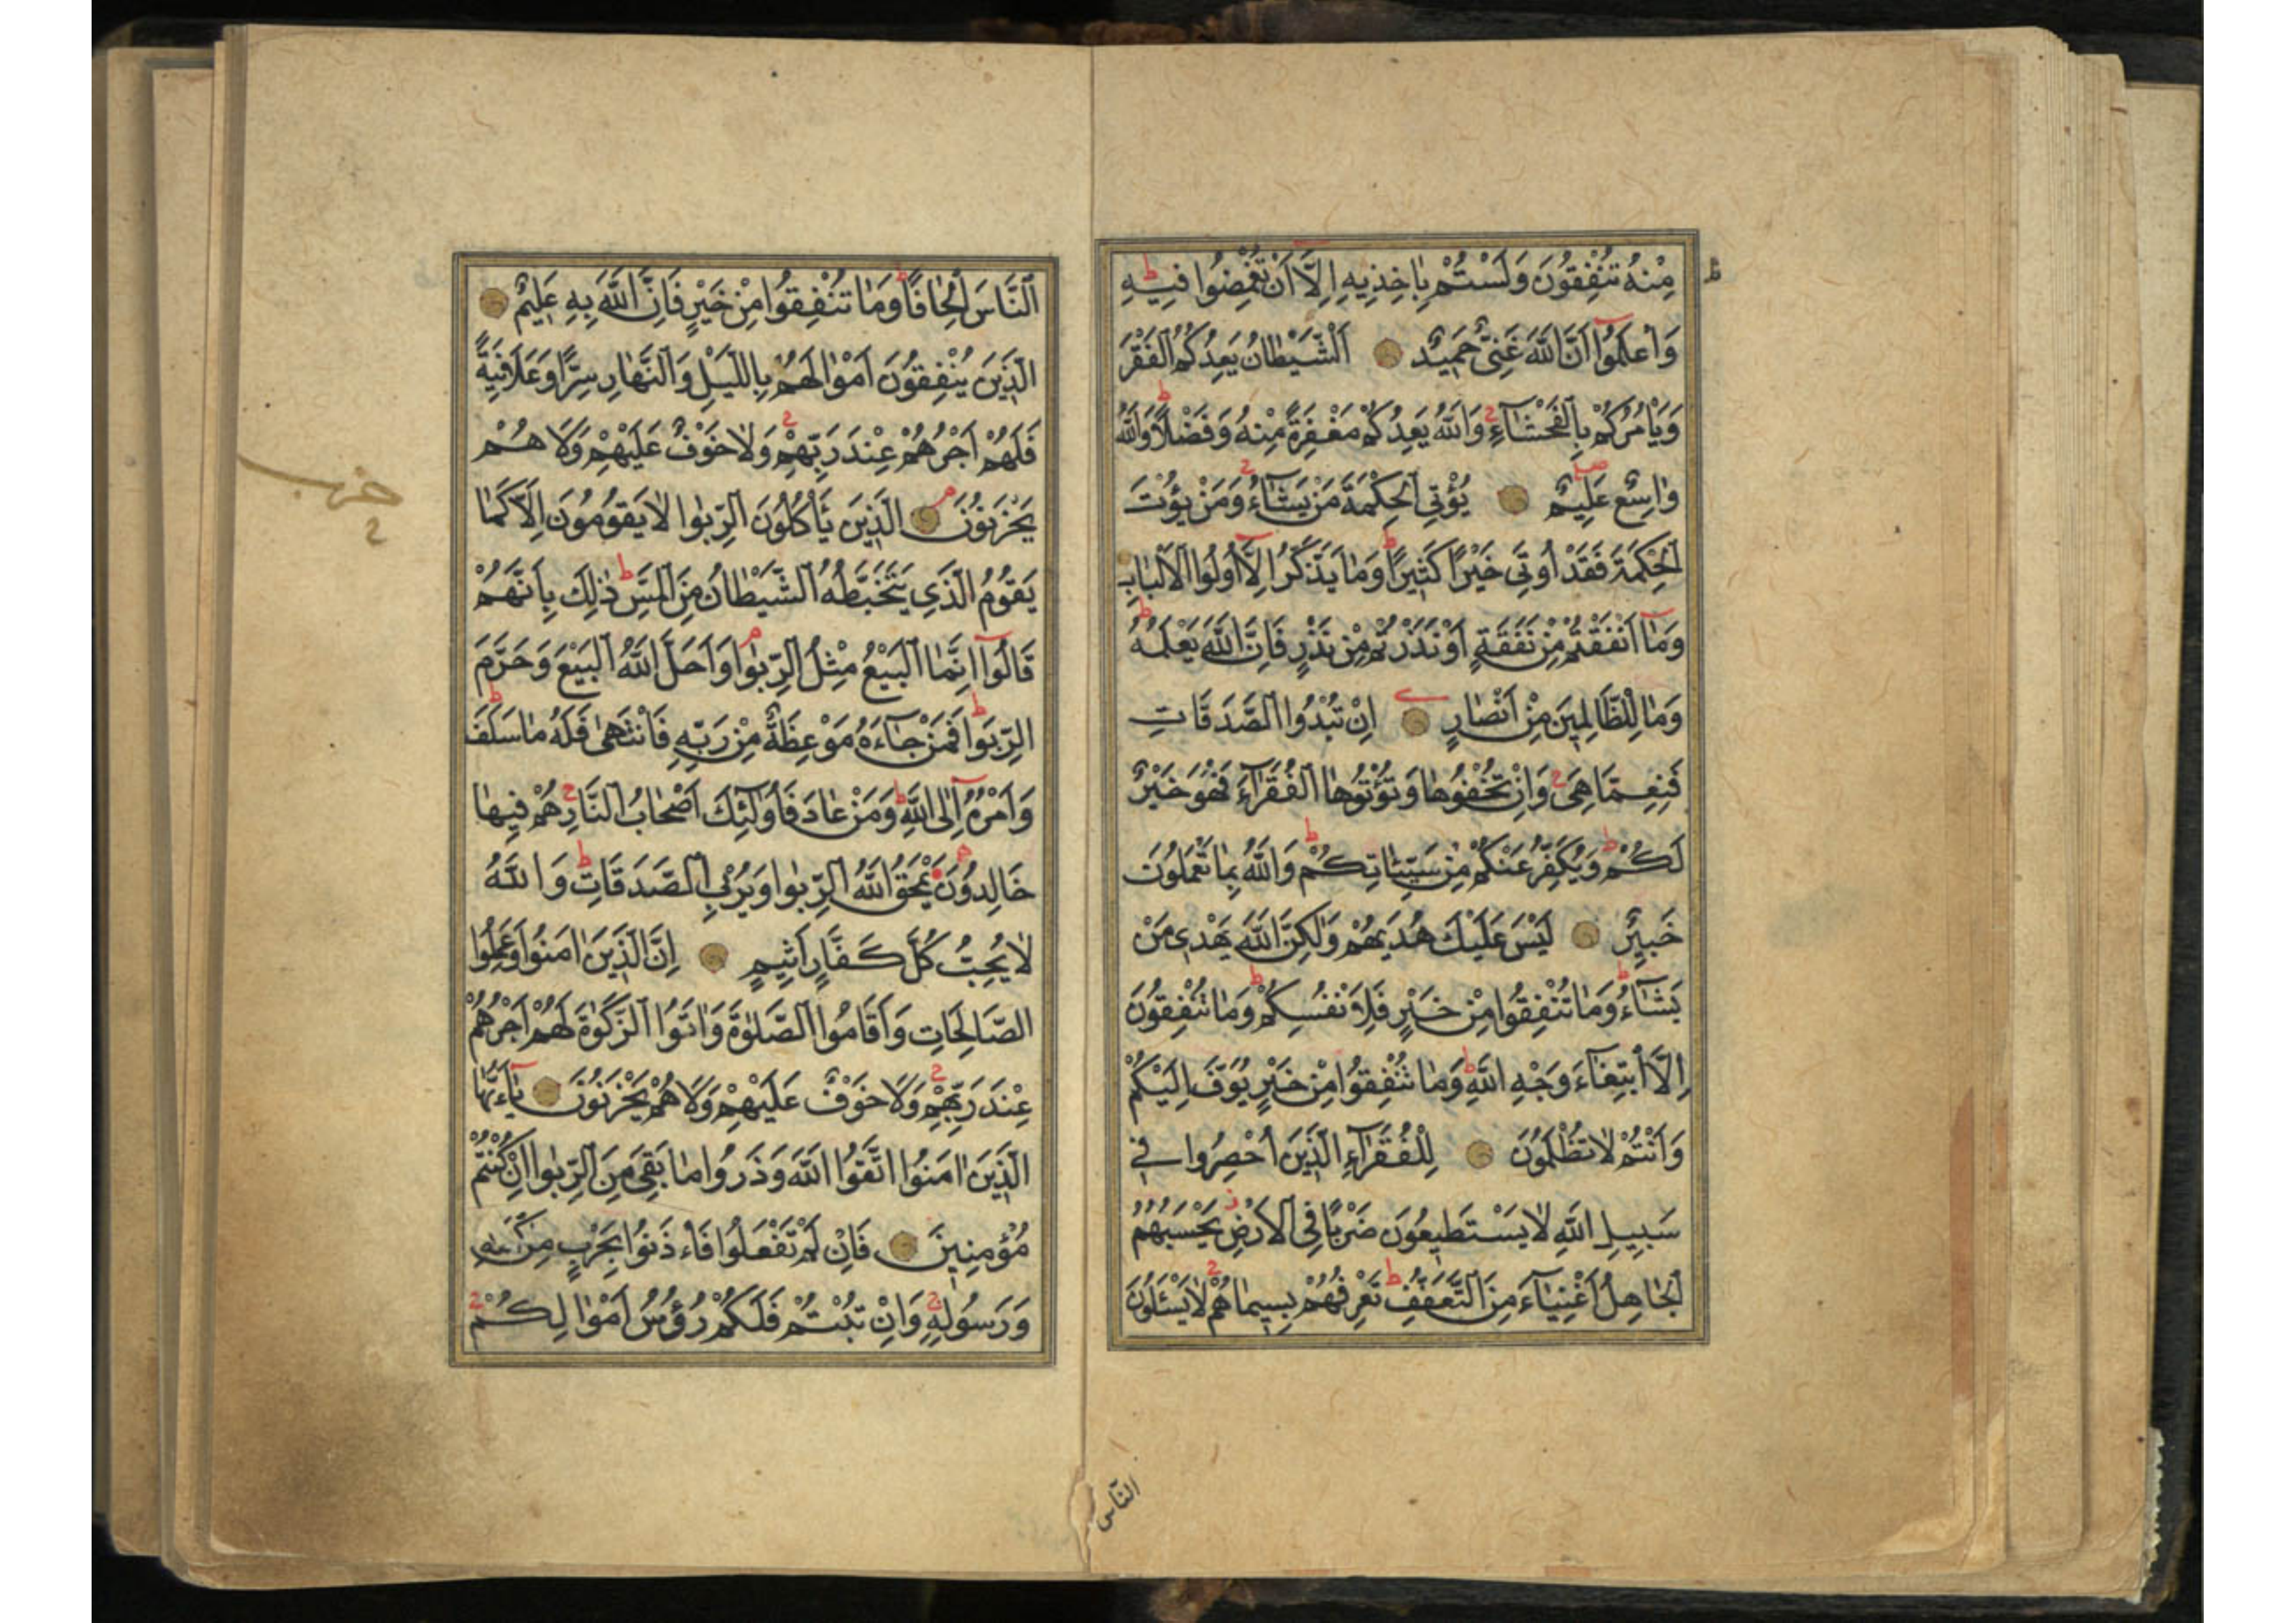 مِنْهُ تُنْفِقُونَ وَلَسْتُمْ بِاٰخِذِيهِ اِلَّآ اَنْ تُغْمِضُوا فِيهِ
وَاعْلَمُوٓا اَنَّ اللّٰهَ غَنِىٌّ حَمِيدٌ اَلشَّيْطَانُ يَعِدُكُمُ الْفَقْرَ
وَيَاْمُرُكُمْ بِالْفَحْشَآءِ وَاللّٰهُ يَعِدُكُمْ مَغْفِرَةً مِنْهُ وَفَضْلًا وَاللّٰهُ
وَاسِعٌ عَلِيمٌ يُؤْتِي الْحِكْمَةَ مَنْ يَشَآءُ وَمَنْ يُؤْتَ
الْحِكْمَةَ فَقَدْ اُوتِيَ خَيْرًا كَثِيرًا وَمَا يَذَّكَّرُ اِلَّآ اُولُوا الْاَلْبَابِ
وَمَآ اَنْفَقْتُمْ مِنْ نَفَقَةٍ اَوْ نَذَرْتُمْ مِنْ نَذْرٍ فَاِنَّ اللّٰهَ يَعْلَمُهُ
وَمَا لِلظَّالِمِينَ مِنْ اَنْصَارٍ اِنْ تُبْدُوا الصَّدَقَاتِ
فَنِعِمَّا هِيَ وَاِنْ تُخْفُوهَا وَتُؤْتُوهَا الْفُقَرَآءَ فَهُوَ خَيْرٌ
لَكُمْ وَيُكَفِّرُ عَنْكُمْ مِنْ سَيِّئَاتِكُمْ وَاللّٰهُ بِمَا تَعْمَلُونَ
خَبِيرٌ لَيْسَ عَلَيْكَ هُدٰيهُمْ وَلٰكِنَّ اللّٰهَ يَهْدِي مَنْ
يَشَآءُ وَمَا تُنْفِقُوا مِنْ خَيْرٍ فَلِاَنْفُسِكُمْ وَمَا تُنْفِقُونَ
اِلَّا ابْتِغَآءَ وَجْهِ اللّٰهِ وَمَا تُنْفِقُوا مِنْ خَيْرٍ يُوَفَّ اِلَيْكُمْ
وَاَنْتُمْ لَا تُظْلَمُونَ لِلْفُقَرَآءِ الَّذِينَ اُحْصِرُوا فِي
سَبِيلِ اللّٰهِ لَا يَسْتَطِيعُونَ ضَرْبًا فِي الْاَرْضِ يَحْسَبُهُمُ
الْجَاهِلُ اَغْنِيَآءَ مِنَ التَّعَفُّفِ تَعْرِفُهُمْ بِسِيمَاهُمْ لَا يَسْئَلُونَ
النّاس
اَلنَّاسَ اِلْحَافًا وَمَا تُنْفِقُوا مِنْ خَيْرٍ فَاِنَّ اللّٰهَ بِهِ عَلِيمٌ
اَلَّذِينَ يُنْفِقُونَ اَمْوَالَهُمْ بِالَّيْلِ وَالنَّهَارِ سِرًّا وَعَلَانِيَةً
فَلَهُمْ اَجْرُهُمْ عِنْدَ رَبِّهِمْ وَلَا خَوْفٌ عَلَيْهِمْ وَلَا هُمْ
يَحْزَنُونَ اَلَّذِينَ يَاْكُلُونَ الرِّبٰوا لَا يَقُومُونَ اِلَّا كَمَا
يَقُومُ الَّذِي يَتَخَبَّطُهُ الشَّيْطَانُ مِنَ الْمَسِّ ذٰلِكَ بِاَنَّهُمْ
قَالُوٓا اِنَّمَا الْبَيْعُ مِثْلُ الرِّبٰوا وَاَحَلَّ اللّٰهُ الْبَيْعَ وَحَرَّمَ
الرِّبٰوا فَمَنْ جَآءَهُ مَوْعِظَةٌ مِنْ رَبِّهِ فَانْتَهٰى فَلَهُ مَا سَلَفَ
وَاَمْرُهُ اِلَى اللّٰهِ وَمَنْ عَادَ فَاُولٰٓئِكَ اَصْحَابُ النَّارِ هُمْ فِيهَا
خَالِدُونَ يَمْحَقُ اللّٰهُ الرِّبٰوا وَيُرْبِي الصَّدَقَاتِ وَاللّٰهُ
لَا يُحِبُّ كُلَّ كَفَّارٍ اَثِيمٍ اِنَّ الَّذِينَ اٰمَنُوا وَعَمِلُوا
الصَّالِحَاتِ وَاَقَامُوا الصَّلٰوةَ وَاٰتَوُا الزَّكٰوةَ لَهُمْ اَجْرُهُمْ
عِنْدَ رَبِّهِمْ وَلَا خَوْفٌ عَلَيْهِمْ وَلَا هُمْ يَحْزَنُونَ يَآءَيُّهَا
الَّذِينَ اٰمَنُوا اتَّقُوا اللّٰهَ وَذَرُوا مَا بَقِيَ مِنَ الرِّبٰوا اِنْ كُنْتُمْ
مُؤْمِنِينَ فَاِنْ لَمْ تَفْعَلُوا فَاْءذَنُوا بِحَرْبٍ مِنَ اللّٰهِ
وَرَسُولِهِ وَاِنْ تُبْتُمْ فَلَكُمْ رُؤُسُ اَمْوَالِكُمْ
حزب